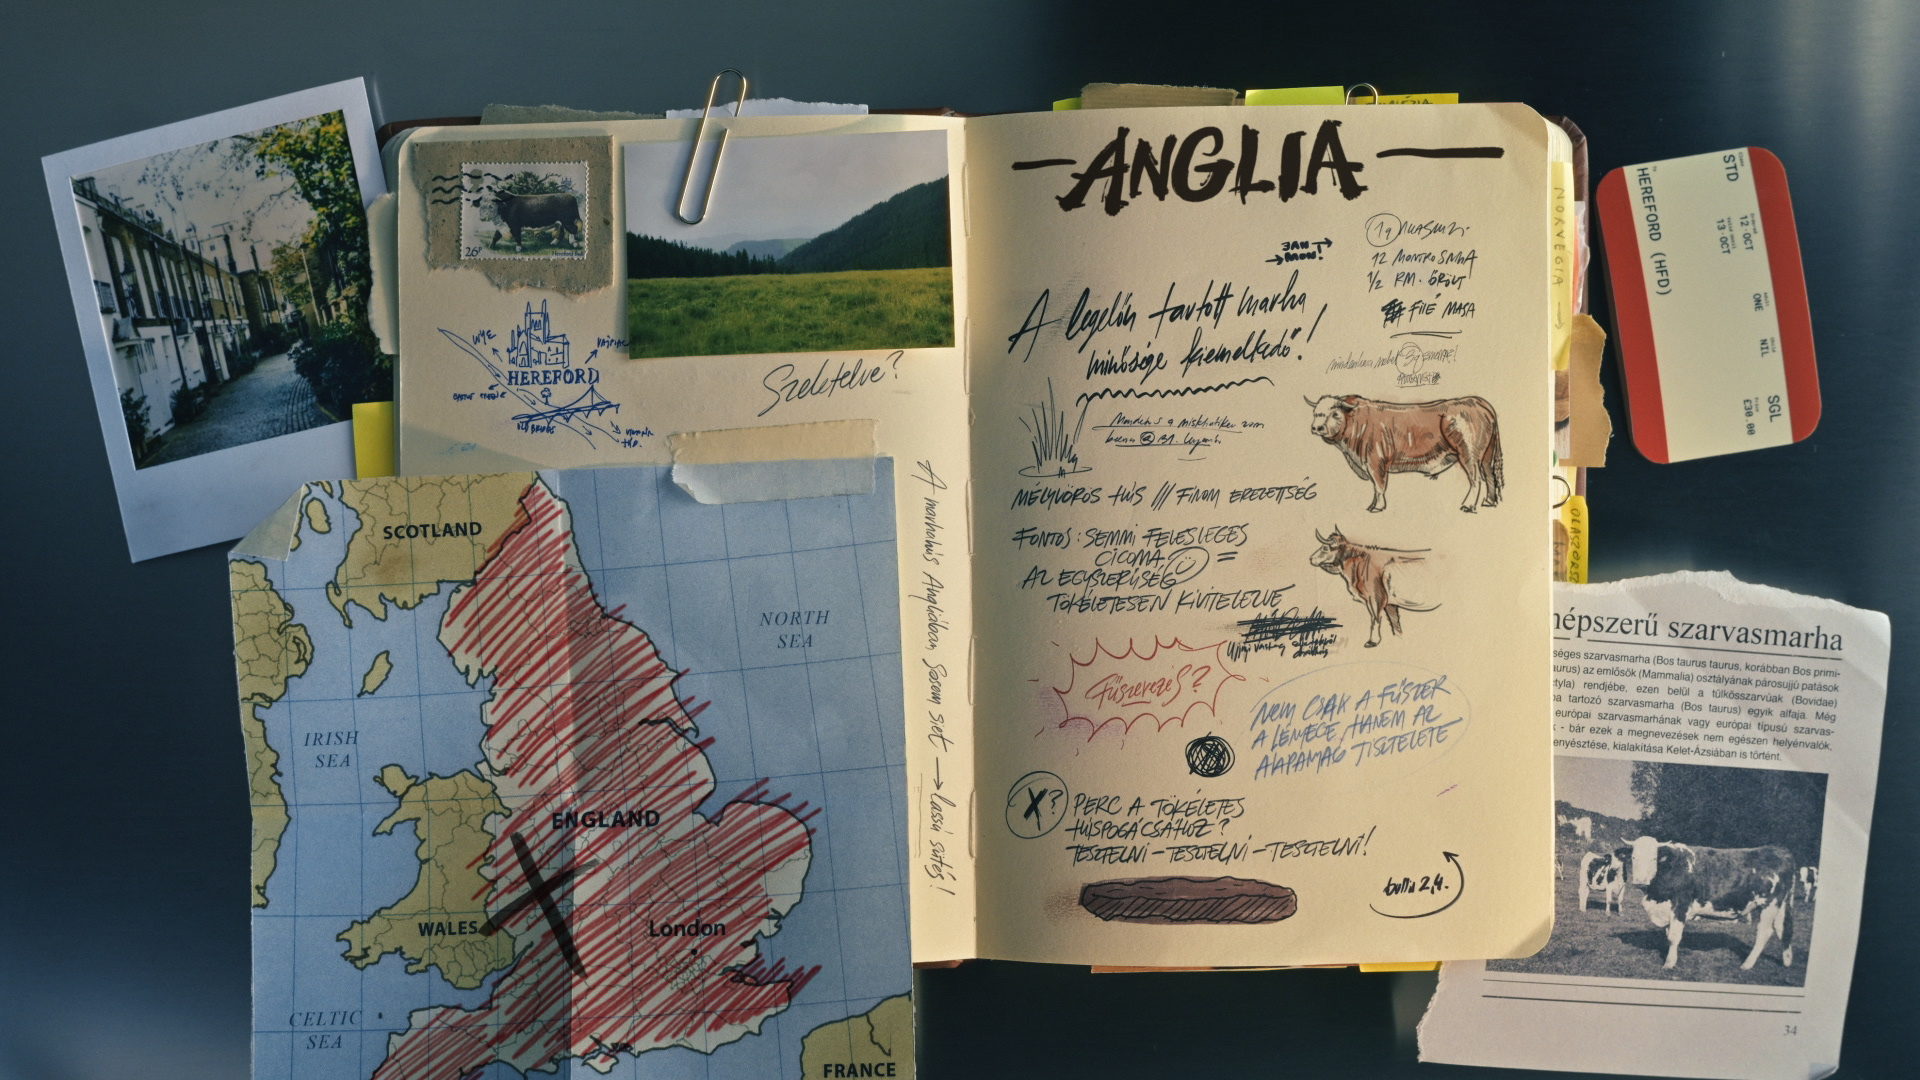 26P
Hereford Bull
WYE
HEREFORD
OLD BRIDGE
Szeletelve?
A marhahús Angliában Sosem siet → lassú sütés!
SCOTLAND
NORTH
SEA
IRISH
SEA
ENGLAND
WALES
London
CELTIC
SEA
FRANCE
ANGLIA
12 MONTROSNHA
1/2 RM. ŐRÖLT
FIIÉ MASA
A legelőn tartott marha
minősége kiemelkedő!
MÉLYVÖRÖS HÚS /// FINOM EREZETTSÉG
FONTOS: SEMMI FELESLEGES
CICOMA =
AZ EGYSZERŰSÉG
TÖKÉLETESEN KIVITELEZVE
Fűszerezés?
NEM CSAK A FŰSZER
A LÉNYEGE, HANEM AZ
ALAPANYAG TISZTELETE
X? PERC A TÖKÉLETES
HÚSPOGÁCSÁHOZ?
TESZTELNI - TESZTELNI - TESZTELNI!
NORVÉGIA →
OLASZORSZ
STD
12·OCT
13·OCT
ONE
NIL
SGL
£30.00
HEREFORD (HFD)
népszerű szarvasmarha
séges szarvasmarha (Bos taurus taurus, korábban Bos primi-
aurus) az emlősök (Mammalia) osztályának párosujjú patások
ctyla) rendjébe, ezen belül a tülkösszarvúak (Bovidae)
ba tartozó szarvasmarha (Bos taurus) egyik alfaja. Még
európai szarvasmarhának vagy európai típusú szarvas-
k - bár ezek a megnevezések nem egészen helyénvalók,
enyésztése, kialakítása Kelet-Ázsiában is történt.
34